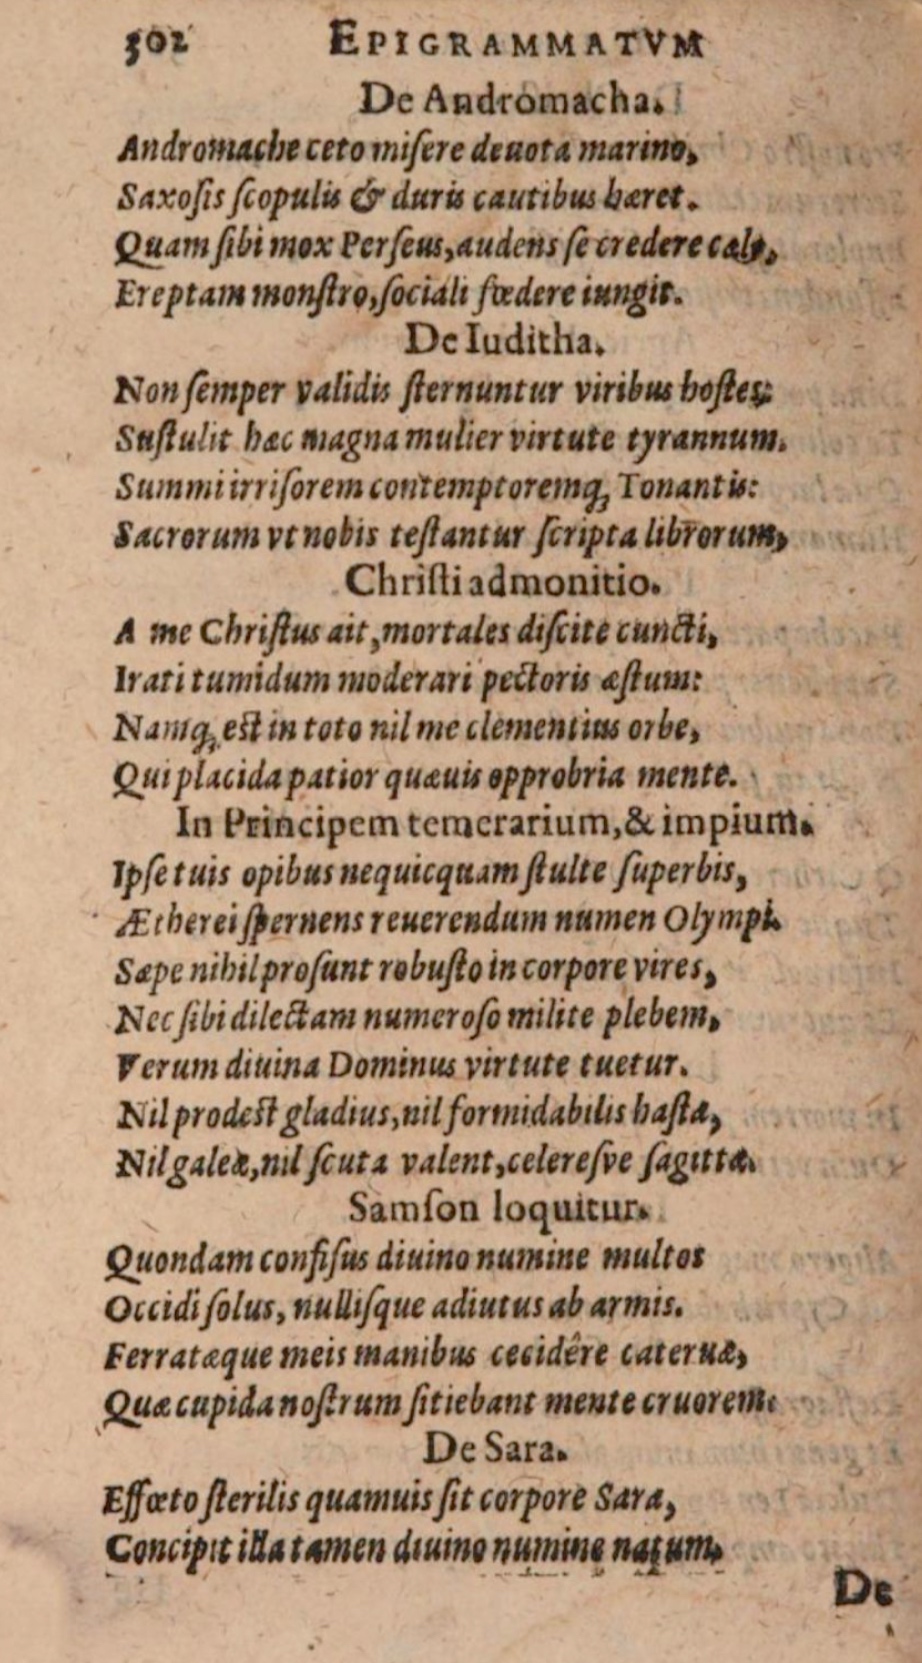 502 EPIGRAMMATVM
De Andromacha.
Andromache ceto miſere deuota marino,
Saxoſis ſcopulis & duris cautibus hæret.
Quam ſibi mox Perſeus, audens ſe credere cælo,
Ereptam monſtro, ſociali fœdere iungit.
De Iuditha.
Non ſemper validis ſternuntur viribus hoſtes:
Suſtulit hæc magna mulier virtute tyrannum.
Summi irriſorem contemptoremq́; Tonantis:
Sacrorum vt nobis teſtantur ſcripta librorum,
Chriſti admonitio.
A me Chriſtus ait, mortales diſcite cuncti,
Irati tumidum moderari pectoris æſtum:
Namq́; eſt in toto nil me clementius orbe,
Qui placida patior quæuis opprobria mente.
In Principem temerarium, & impium.
Ipſe tuis opibus nequicquam ſtulte ſuperbis,
Ætherei ſpernens reuerendum numen Olympi.
Sæpe nihil proſunt robuſto in corpore vires,
Nec ſibi dilectam numeroſo milite plebem,
Verum diuina Dominus virtute tuetur.
Nil prodeſt gladius, nil formidabilis haſta,
Nil galeæ, nil ſcuta valent, celereſve ſagittæ.
Samſon loquitur.
Quondam confiſus diuino numine multos
Occidi ſolus, nulliſque adiutus ab armis.
Ferratæque meis manibus cecidêre cateruæ,
Quæ cupida noſtrum ſitiebant mente cruorem.
De Sara.
Effœto ſterilis quamuis ſit corpore Sara,
Concipit illa tamen diuino numine natum.
De